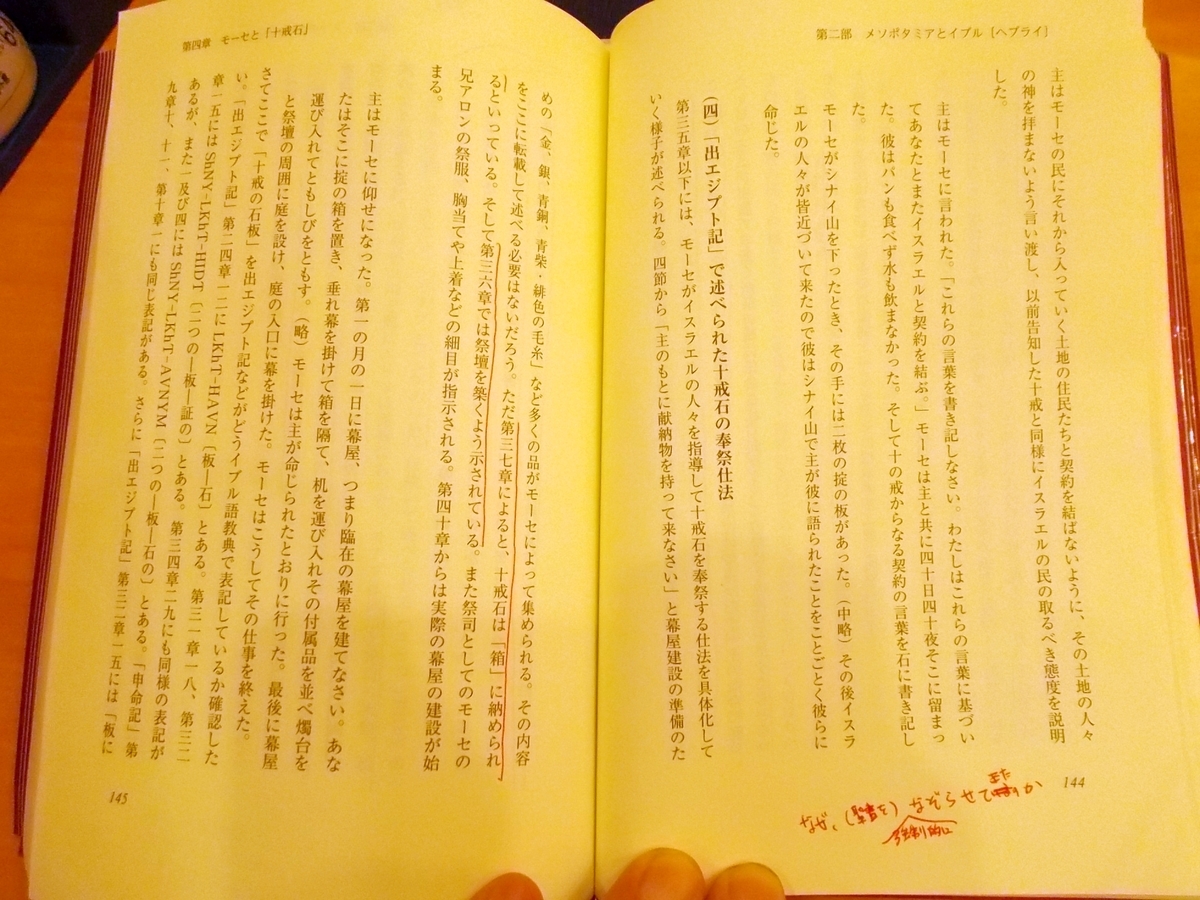 第二部　メソポタミアとイブル〔ヘブライ〕
主はモーセの民にそれから入っていく土地の住民たちと契約を結ばないように、その土地の人々
の神を拝まないよう言い渡し、以前告知した十戒と同様にイスラエルの民の取るべき態度を説明
した。
主はモーセに言われた。「これらの言葉を書き記しなさい。わたしはこれらの言葉に基づい
てあなたとまたイスラエルと契約を結ぶ。」モーセは主と共に四十日四十夜そこに留まっ
た。彼はパンも食べず水も飲まなかった。そして十の戒からなる契約の言葉を石に書き記し
た。
モーセがシナイ山を下ったとき、その手には二枚の掟の板があった。（中略）その後イスラ
エルの人々が皆近づいて来たので彼はシナイ山で主が彼に語られたことをことごとく彼らに
命じた。
（四）「出エジプト記」で述べられた十戒石の奉祭仕法
第三五章以下には、モーセがイスラエルの人々を指導して十戒石を奉祭する仕法を具体化して
いく様子が述べられる。四節から「主のもとに献納物を持って来なさい」と幕屋建設の準備のた
144
なぜ、(聖書を)なぞらせて
また
か
強制的に
第四章　モーセと「十戒石」
めの「金、銀、青銅、青柴・緋色の毛糸」など多くの品がモーセによって集められる。その内容
をここに転載して述べる必要はないだろう。ただ第三七章によると、十戒石は「箱」に納められ
るといっている。そして第三六章では祭壇を築くよう示されている。また祭司としてのモーセの
兄アロンの祭服、胸当てや上着などの細目が指示される。第四十章からは実際の幕屋の建設が始
まる。
主はモーセに仰せになった。第一の月の一日に幕屋、つまり臨在の幕屋を建てなさい。あな
たはそこに掟の箱を置き、垂れ幕を掛けて箱を隔て、机を運び入れその付属品を並べ燭台を
運び入れてともしびをともす。（略）モーセは主が命じられたとおりに行った。最後に幕屋
と祭壇の周囲に庭を設け、庭の入口に幕を掛けた。モーセはこうしてその仕事を終えた。
さてここで「十戒の石板」を出エジプト記などがどうイブル語教典で表記しているか確認した
い。「出エジプト記」第二四章一二にLKhT-HAVN〔板―石〕とある。第三一章一八、第三二
章一五にはShNY-LKhT-HIDT〔二つの―板―証の〕とある。第三四章二九にも同様の表記が
あるが、また一及び四にはShNY-LKhT-AVNYM〔二つの―板―石の〕とある。「申命記」第
九章十、十一、第十章一にも同じ表記がある。さらに「出エジプト記」第三二章一五には「板に
145